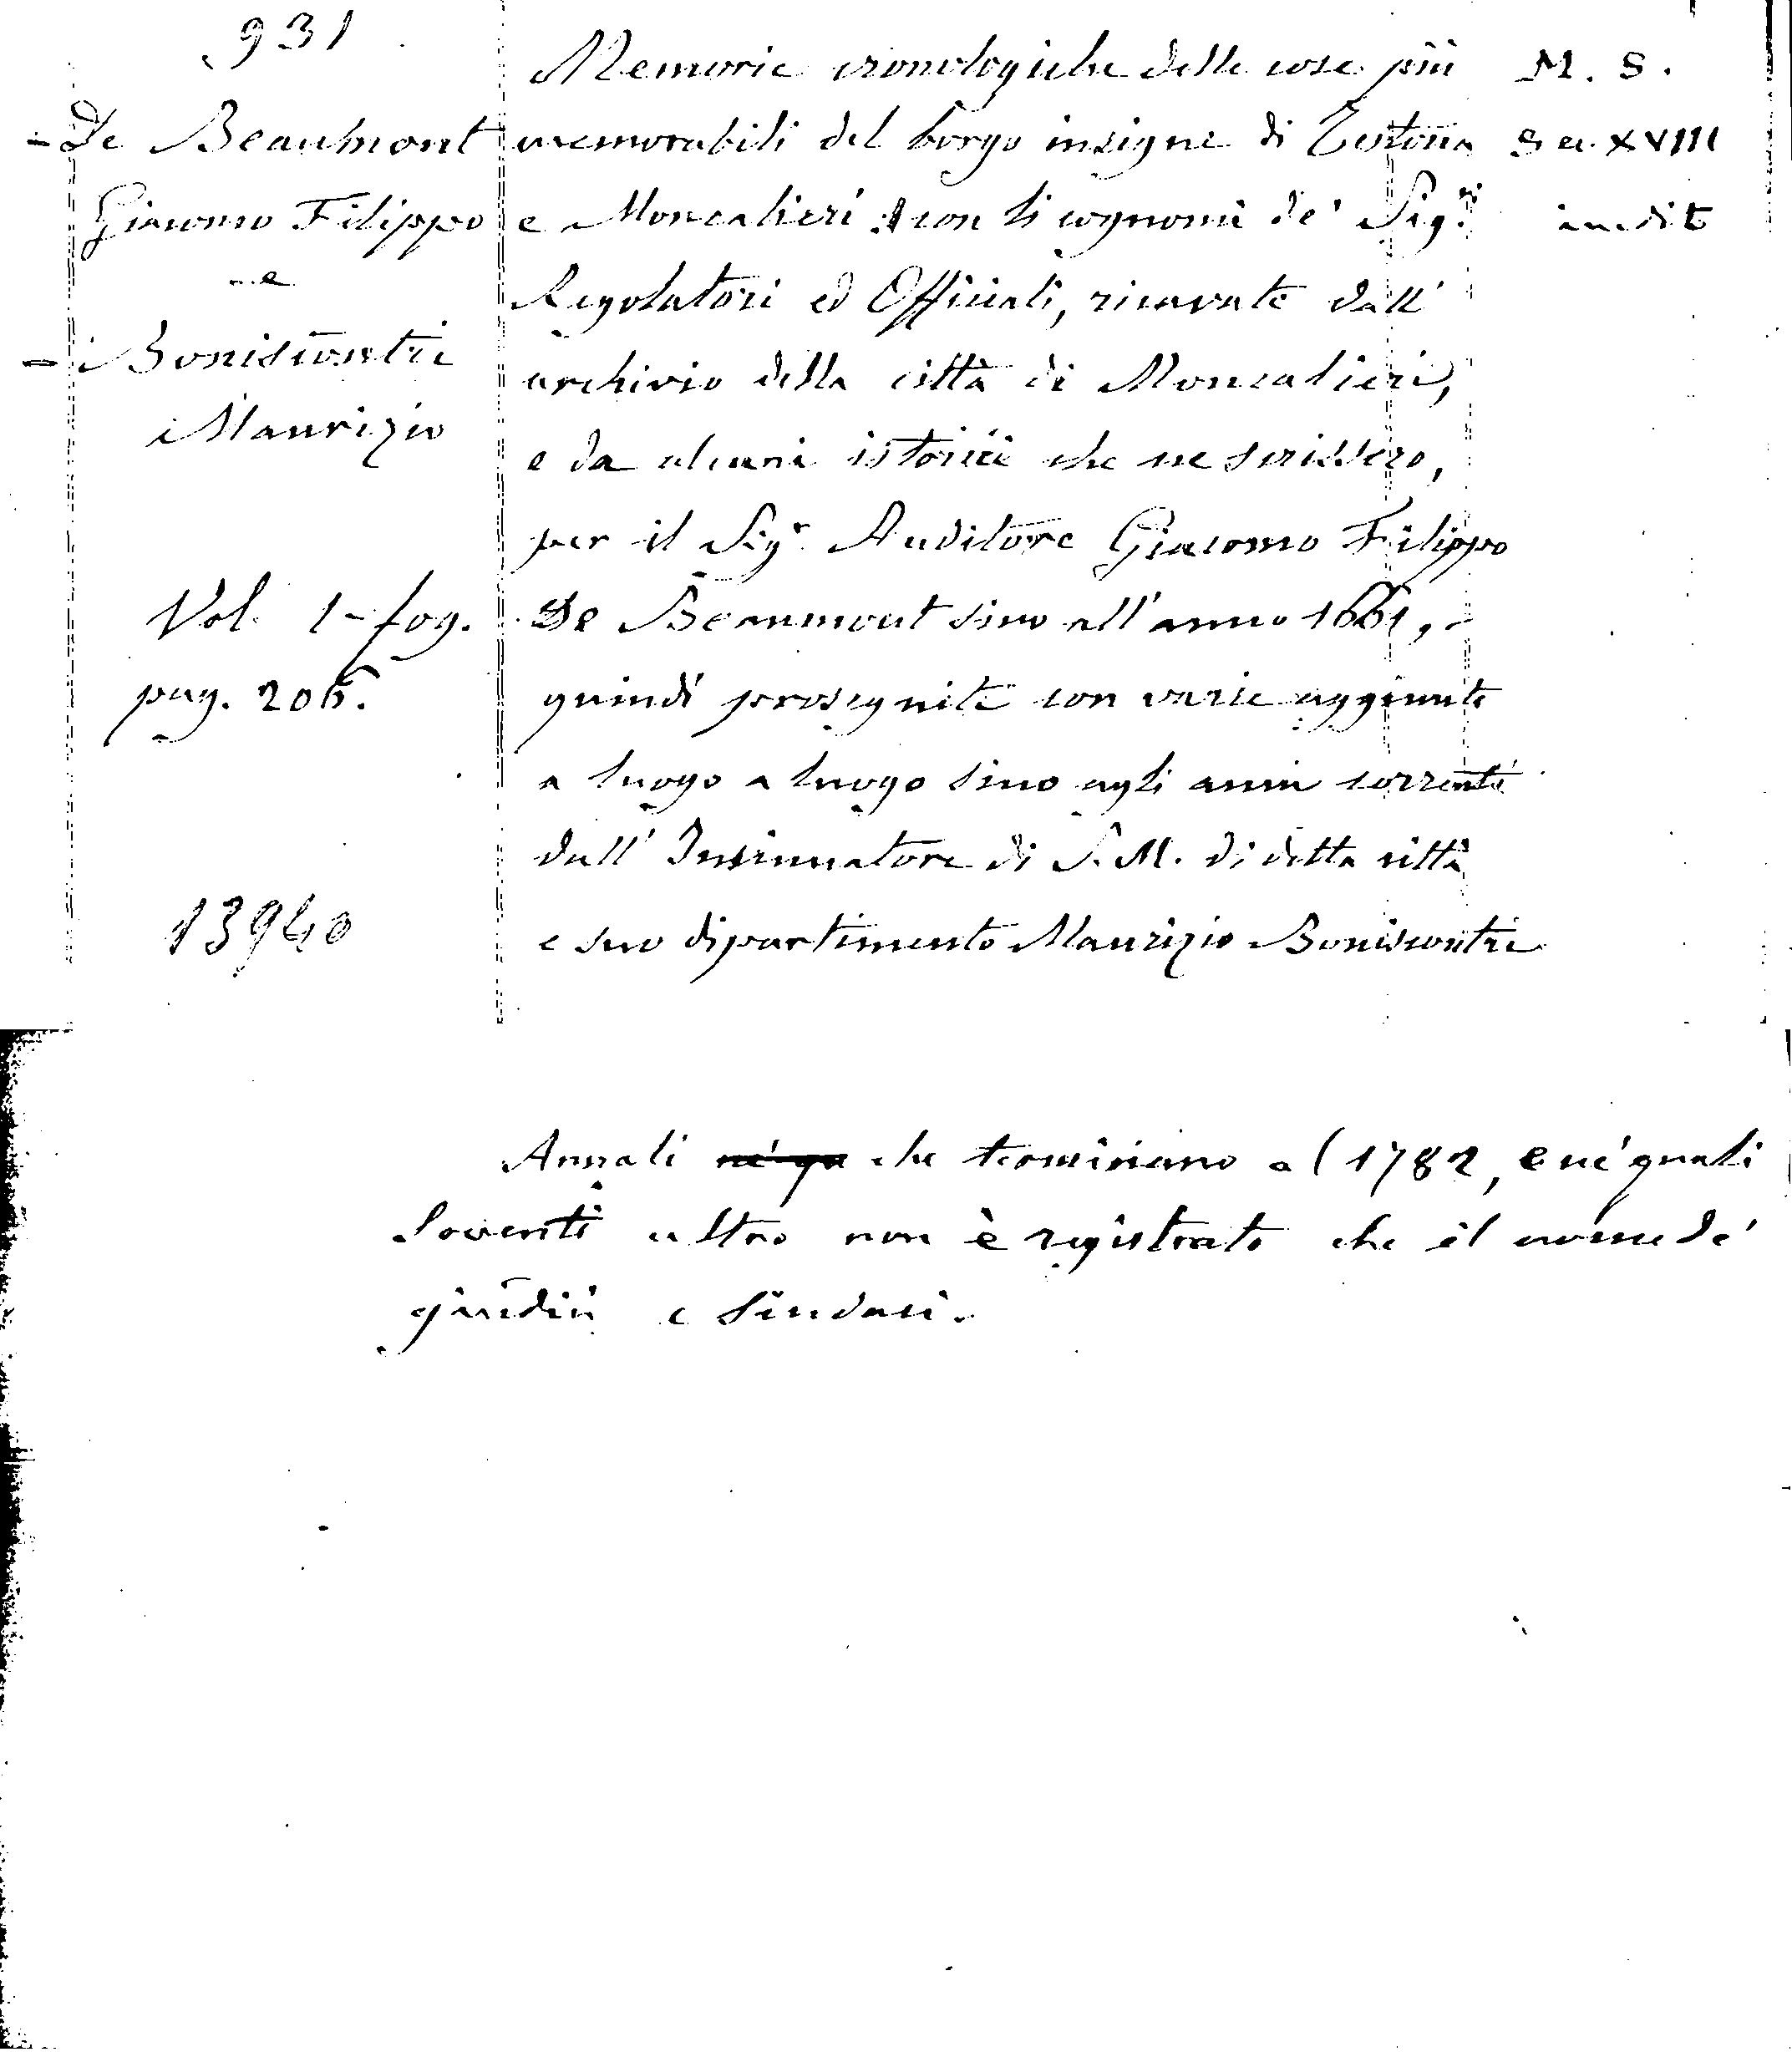 931
De Beaumont
Giacomo Filippo
e
Boniscontri
Maurizio
Vol. 1 - fog.
pag. 206.
13940
Memorie cronologiche delle cose più
memorabili del borgo insigne di Testona
e Moncalieri con li cognomi de' Sig.ri
Regolatori ed Officiali, ricavate dall'
archivio della città di Moncalieri,
e da alcuni istorici che ne scrissero,
per il Sigr. Auditore Giacomo Filippo
De Beaumont sino all'anno 1661,
quindi proseguite con varie aggiunte
a luogo a luogo sino agli anni correnti
dall' Insinuatore di S. M. di detta città
e suo dipartimento Maurizio Boniscontri
M. S.
Sec. XVIII
inedito
Annali ne' qu che terminano al 1782, e ne' quali
sovente altro non è registrato che il nome de'
giudici e sindaci.